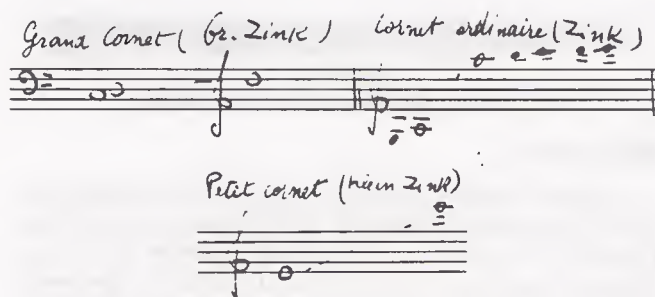 Grand Cornet ( Gr. Zink ) Cornet ordinaire ( Zink )
Petit cornet ( klein Zink )